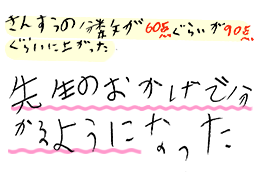 さんすうの点数が60点ぐらいが90点
ぐらいに上がった
先生のおかげで分
かるようになった